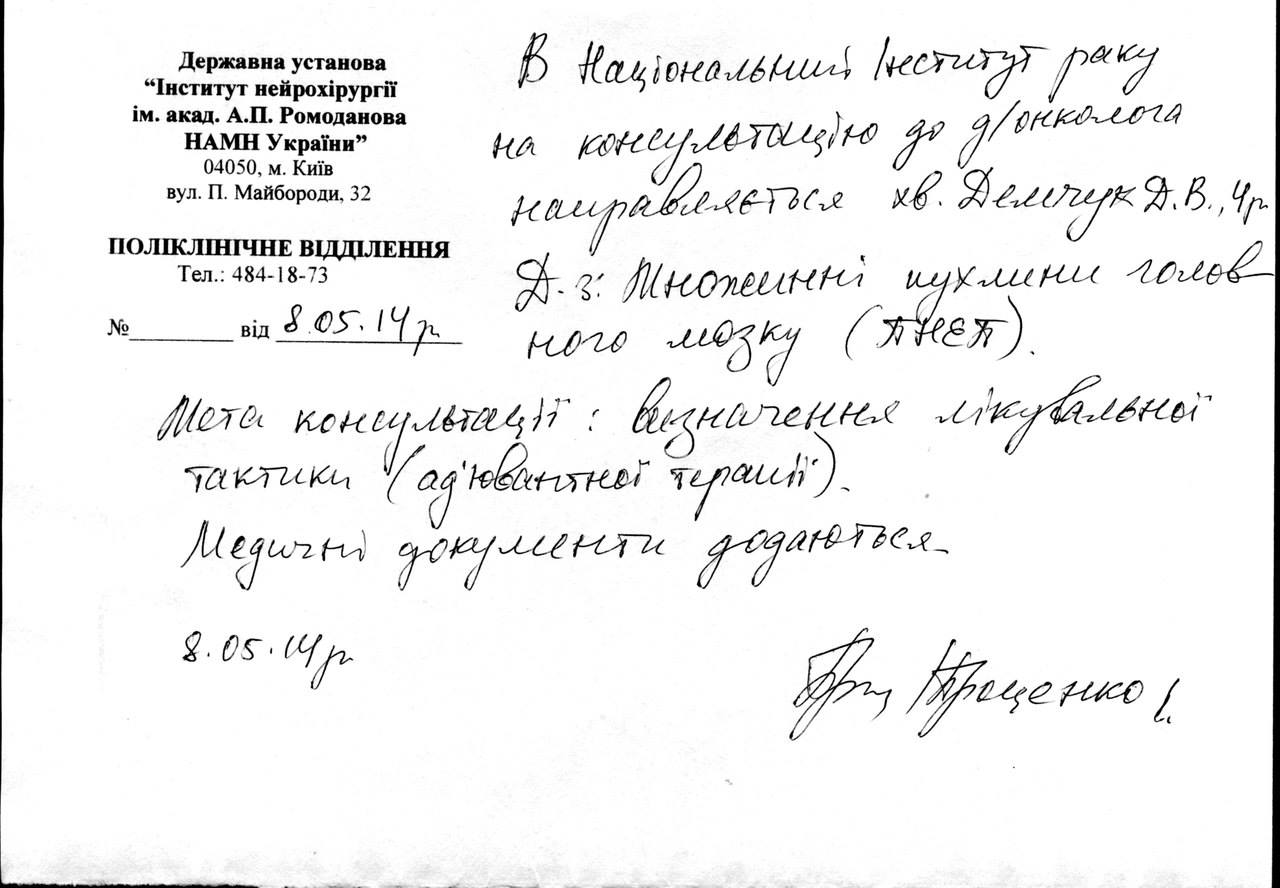 Державна установа
“Інститут нейрохірургії
ім. акад. А.П. Ромоданова
НАМН України”
04050, м. Київ
вул. П. Майбороди, 32
ПОЛІКЛІНІЧНЕ ВІДДІЛЕННЯ
Тел.: 484-18-73
№________ від 8.05.14р
В Національний Інститут раку
на консультацію до д/онколога
направляється хв. Демчук Д.В., 4р.
Д-з: Множинні пухлини голов
ного мозку (ПНЕП).
Мета консультації: визначення лікувальної
тактики (ад'ювантної терапії).
Медичні документи додаються
8.05.14р
Проценко